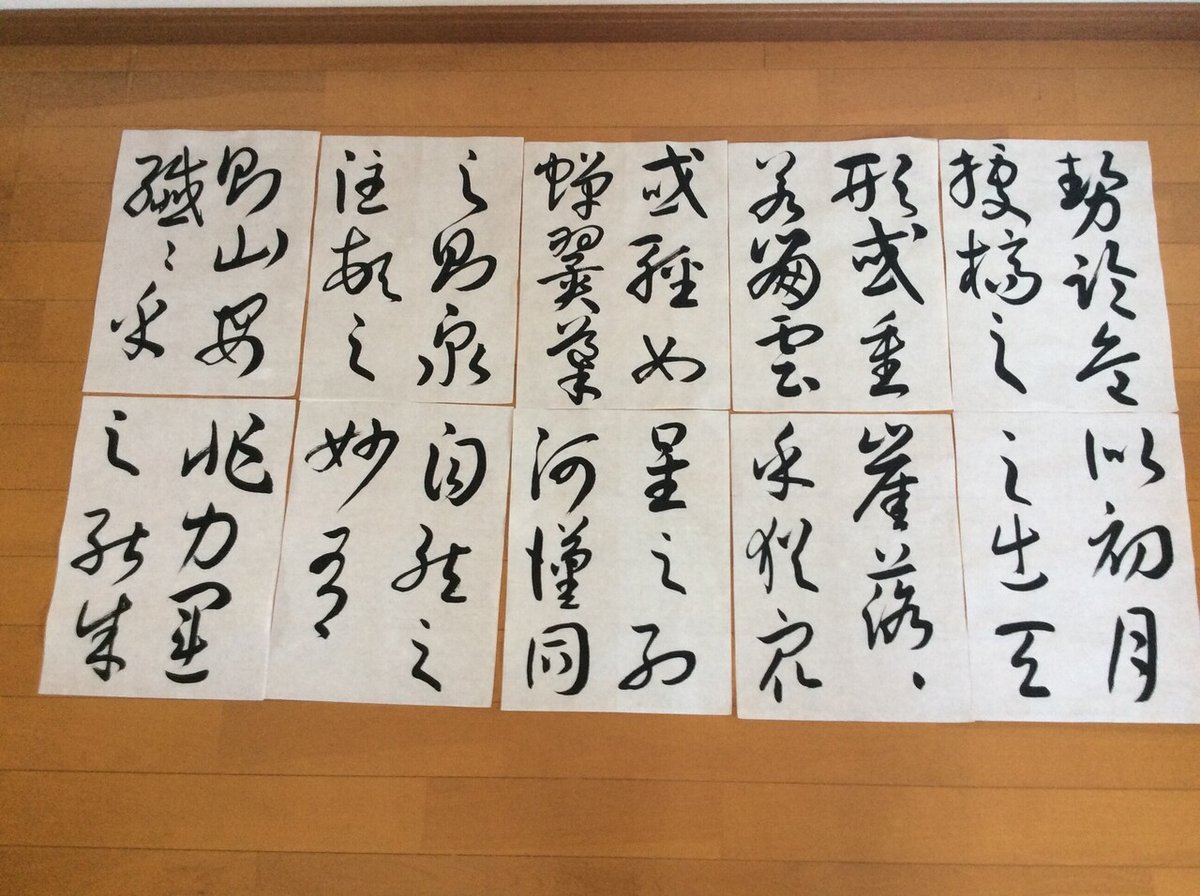 勢臨危
據槁之
形或重
若崩雲
或輕如
蟬翼導
之則泉
注頓之
則山安
纖々乎
似初月
之出天
崖落々
乎猶衆
星之列
河漢同
自然之
妙有
非力運
之能成